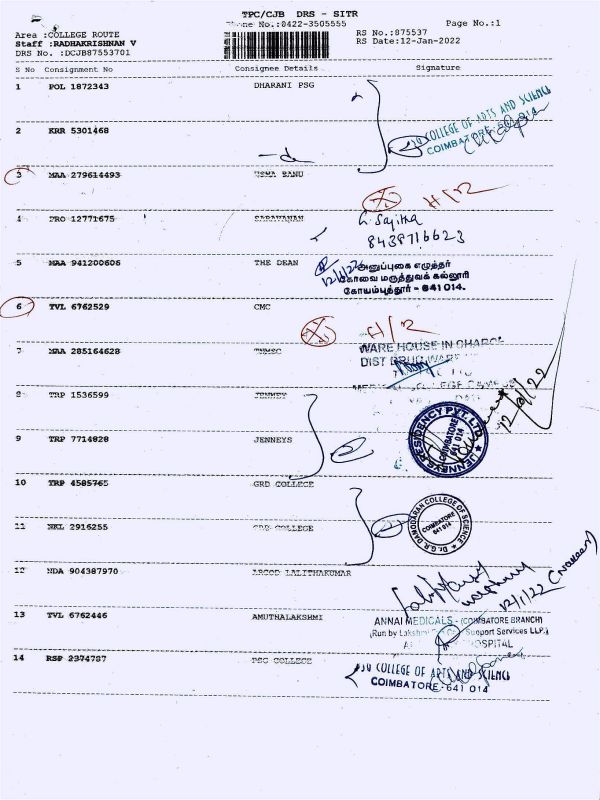 TPC/CJB DRS - SITR
Phone No.:0422-3505555
Page No.:1
Area :COLLEGE ROUTE
RS No.:875537
Staff :RADHAKRISHNAN V
RS Date:12-Jan-2022
DRS No. :DCJB87553701
S No Consignment No Consignee Details Signature
1 POL 1872343 DHARANI PSG
COLLEGE OF ARTS AND SCIENCE
COIMBATORE
2 KRR 5301468
3 MAA 279614493 USMA BANU
4 PRO 12771675 SARAVANAN
G. Sajitha
8438716623
5 MAA 941200606 THE DEAN
12/1/22
அனுப்புகை எழுத்தர்
கோவை மருத்துவக் கல்லூரி
கோயம்புத்தூர் - 641 014.
6 TVL 6762529 CMC
7 MAA 285164628 TNMSC
WARE HOUSE IN CHARGE
DIST DRUG WARE
8 TRP 1536599 JENNEY
9 TRP 7714828 JENNEYS
JENNEYS RESIDENCY PVT. LTD.
COIMBATORE
641 014
10 TRP 4585765 GRD COLLEGE
11 NKL 2916255 GRD COLLEGE
Dr. G.R. DAMODARAN COLLEGE OF SCIENCE
COIMBATORE
641 014
12 NDA 904387970 LALITHAKUMAR
12/1/22
13 TVL 6762446 AMUTHALAKSHMI
ANNAI MEDICALS - (COIMBATORE BRANCH)
(Run by Lakshmi Support Services LLP.)
HOSPITAL
14 RSP 2374787 PSG COLLEGE
COLLEGE OF ARTS AND SCIENCE
COIMBATORE - 641 014